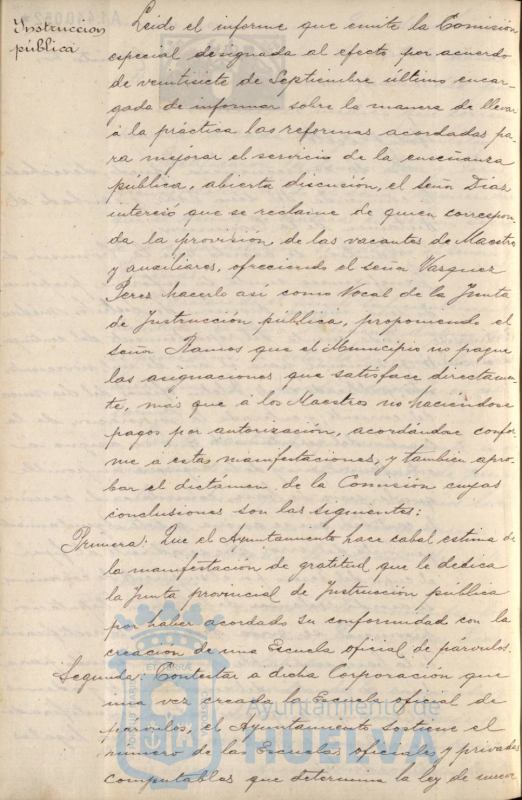 Instruccion
pública
Leido el informe que emite la Comision
especial designada al efecto por acuerdo
de veintisiete de Septiembre último encar-
gada de informar sobre la manera de llevar
á la práctica las reformas acordadas pa-
ra mejorar el servicio de la enseñanza
pública, abierta discusión, el señor Diaz
interesó que se reclame de quien correspon-
da la provisión de las vacantes de Maestros
y auxiliares, ofreciendo el señor Vazquez
Perez hacerlo así como Vocal de la Junta
de Instrucción pública, proponiendo el
señor Ramos que el Municipio no pague
las asignaciones que satisface directamen-
te, más que á los Maestros no haciéndose
pagos por autorización, acordándose confor-
me á estas manifestaciones, y tambien apro-
bar el dictámen de la Comisión cuyas
conclusiones son las siguientes:
Primera: Que el Ayuntamiento hace cabal estima de
la manifestación de gratitud que le dedica
la Junta provincial de Instrucción pública
por haber acordado su conformidad con la
creación de una Escuela oficial de párvulos.
Segunda: Contestar a dicha Corporación que
una vez creada la Escuela oficial de
párvulos, el Ayuntamiento sostiene el
número de las Escuelas oficiales y privadas
computables que determina la ley de nueve
Ayuntamiento de
HUELVA